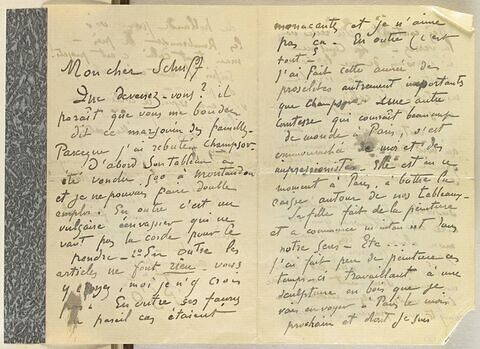 Mon cher Schuff
Que devenez-vous? il
paraît que vous me boudez
dit ce mazouin des
Parceque j'ai rebuté Champsor
D'abord Son tableau a
été vendu 500 à Montandon
et je ne pouvais faire double
emploi. En outre c'est un
vulgaire envasseur qui ne
vaut pas la corde pour le
prendre — En outre les
articles ne font rien. vous
y croyez moi je n'y crois
En outre ses
pareil cas étaient
menaçants et je n'aime
pas ça. En outre (c'est
tout)
j'ai fait cette année des
proselites autrement importants
que Champsor. Une autre
Comtesse qui connaît beaucoup
de monde à Paris, s'est
emmourachée de moi et des
impressionistes. Elle est en ce
moment à Paris, à battre la
caisse autour de nos tableaux.
Sa fille fait de la peinture
et a commencé maintenant dans
notre sens — Etc ...
j'ai fait peu de peinture ces
temps-ci travaillant à une
sculpture en bois que je
vais envoyer à Paris le mois
prochain et dont je suis